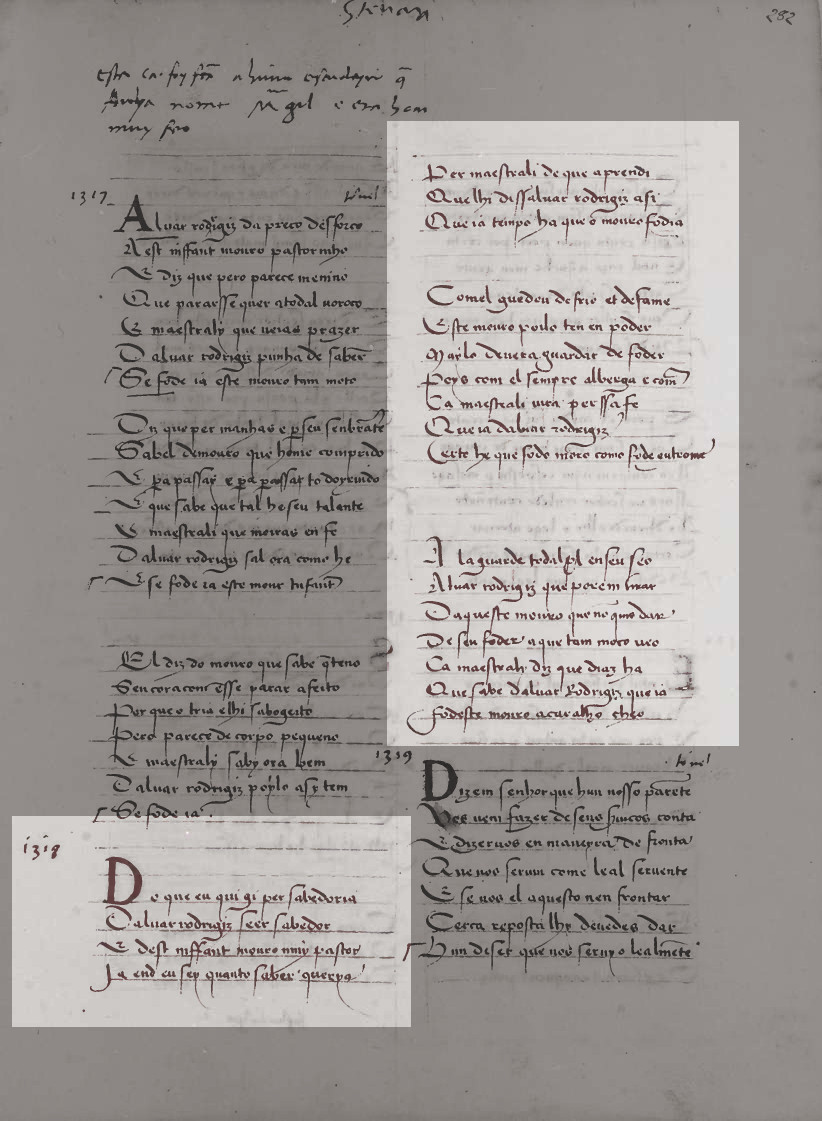 Stevan
282
Esta ca foy fca a huum
nome e era hom
muy feo
1317
tornel
Alvar rodrigiz da preco desforco
A est inffant mouro pastorinho
E diz que pero parece menino
Que pararsse quer a todal voroco
E maestraly que veias prazer
Daluar rodrigiz punha de saber
Se fode ia este mouro tam moco
Diz que per manhas e pseu senbrate
Sabel demouro que home comprido
E pa passar e pa
E que sabe que tal he seu talante
E maestrali que moiras en fe
Daluar rodrigiz sal ora como he
E se fode ia este mour infant
El diz do mouro que sabe q teno
Seu coracon esse parar afeito
Por que o cria e lhi
Pero parece de corpo pequeno
E maestraly saby ora bem
Daluar rodrigiz poylo asy tem
Se fode ia
1318
Do que eu qui gi per sabedoria
Daluar rodrigiz seer sabedor
E dest inffant mouro muy pastor
Ja end eu sey quanto saber querya
Per maestrali de que aprendi
Que lhi dissaluar rodrigiz asi
Que ia tempo ha que o mouro fodia
Comel guedou de frio et de fame
Este mouro poilo ten en poder
Mayloo devera guardar de foder
Poys com el sempre alberga e com
Ca maestrali iura per ssa fe
Que ia daluar rodrigiz
Certe he que fode mouro como fode outrome
A la guarde todal pl en seu seo
Aluar rodrigiz que porem tirar
Daqueste mouro que no quis dar
De seu foder a que tam moco veo
Ca maestrali diz que diaz ha
Que sabe daluar Rodrigiz que ia
Fodeste mouro a caralho cheo
1319
tornel
Dizem senhor que hun nosso parente
Vos veni fazer de seus huicos conta
E dizervos en maneyra de fronta
Que uos seruiu come leal seruente
E se uos el aquesto nen frontar
Cerca reposta lhy deuedes dar
Hun diser que uos seruyo lealmete